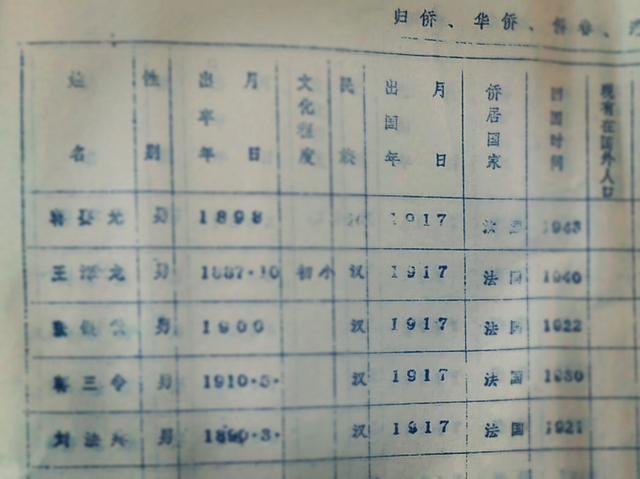 归侨、华侨、侨眷、
姓名 性别 出车年月日 文化程度 民族 出国年月日 侨居国家 回国时间 现有在国外人口
男 1898 1917 法 1943
王泽龙 男 1887·10 初小 汉 1917 法国 1940
男 1900 汉 1917 法国 1922
三令 男 1910·3· 汉 1917 法国 1930
刘法 男 1890·3· 汉 1917 法国 1921